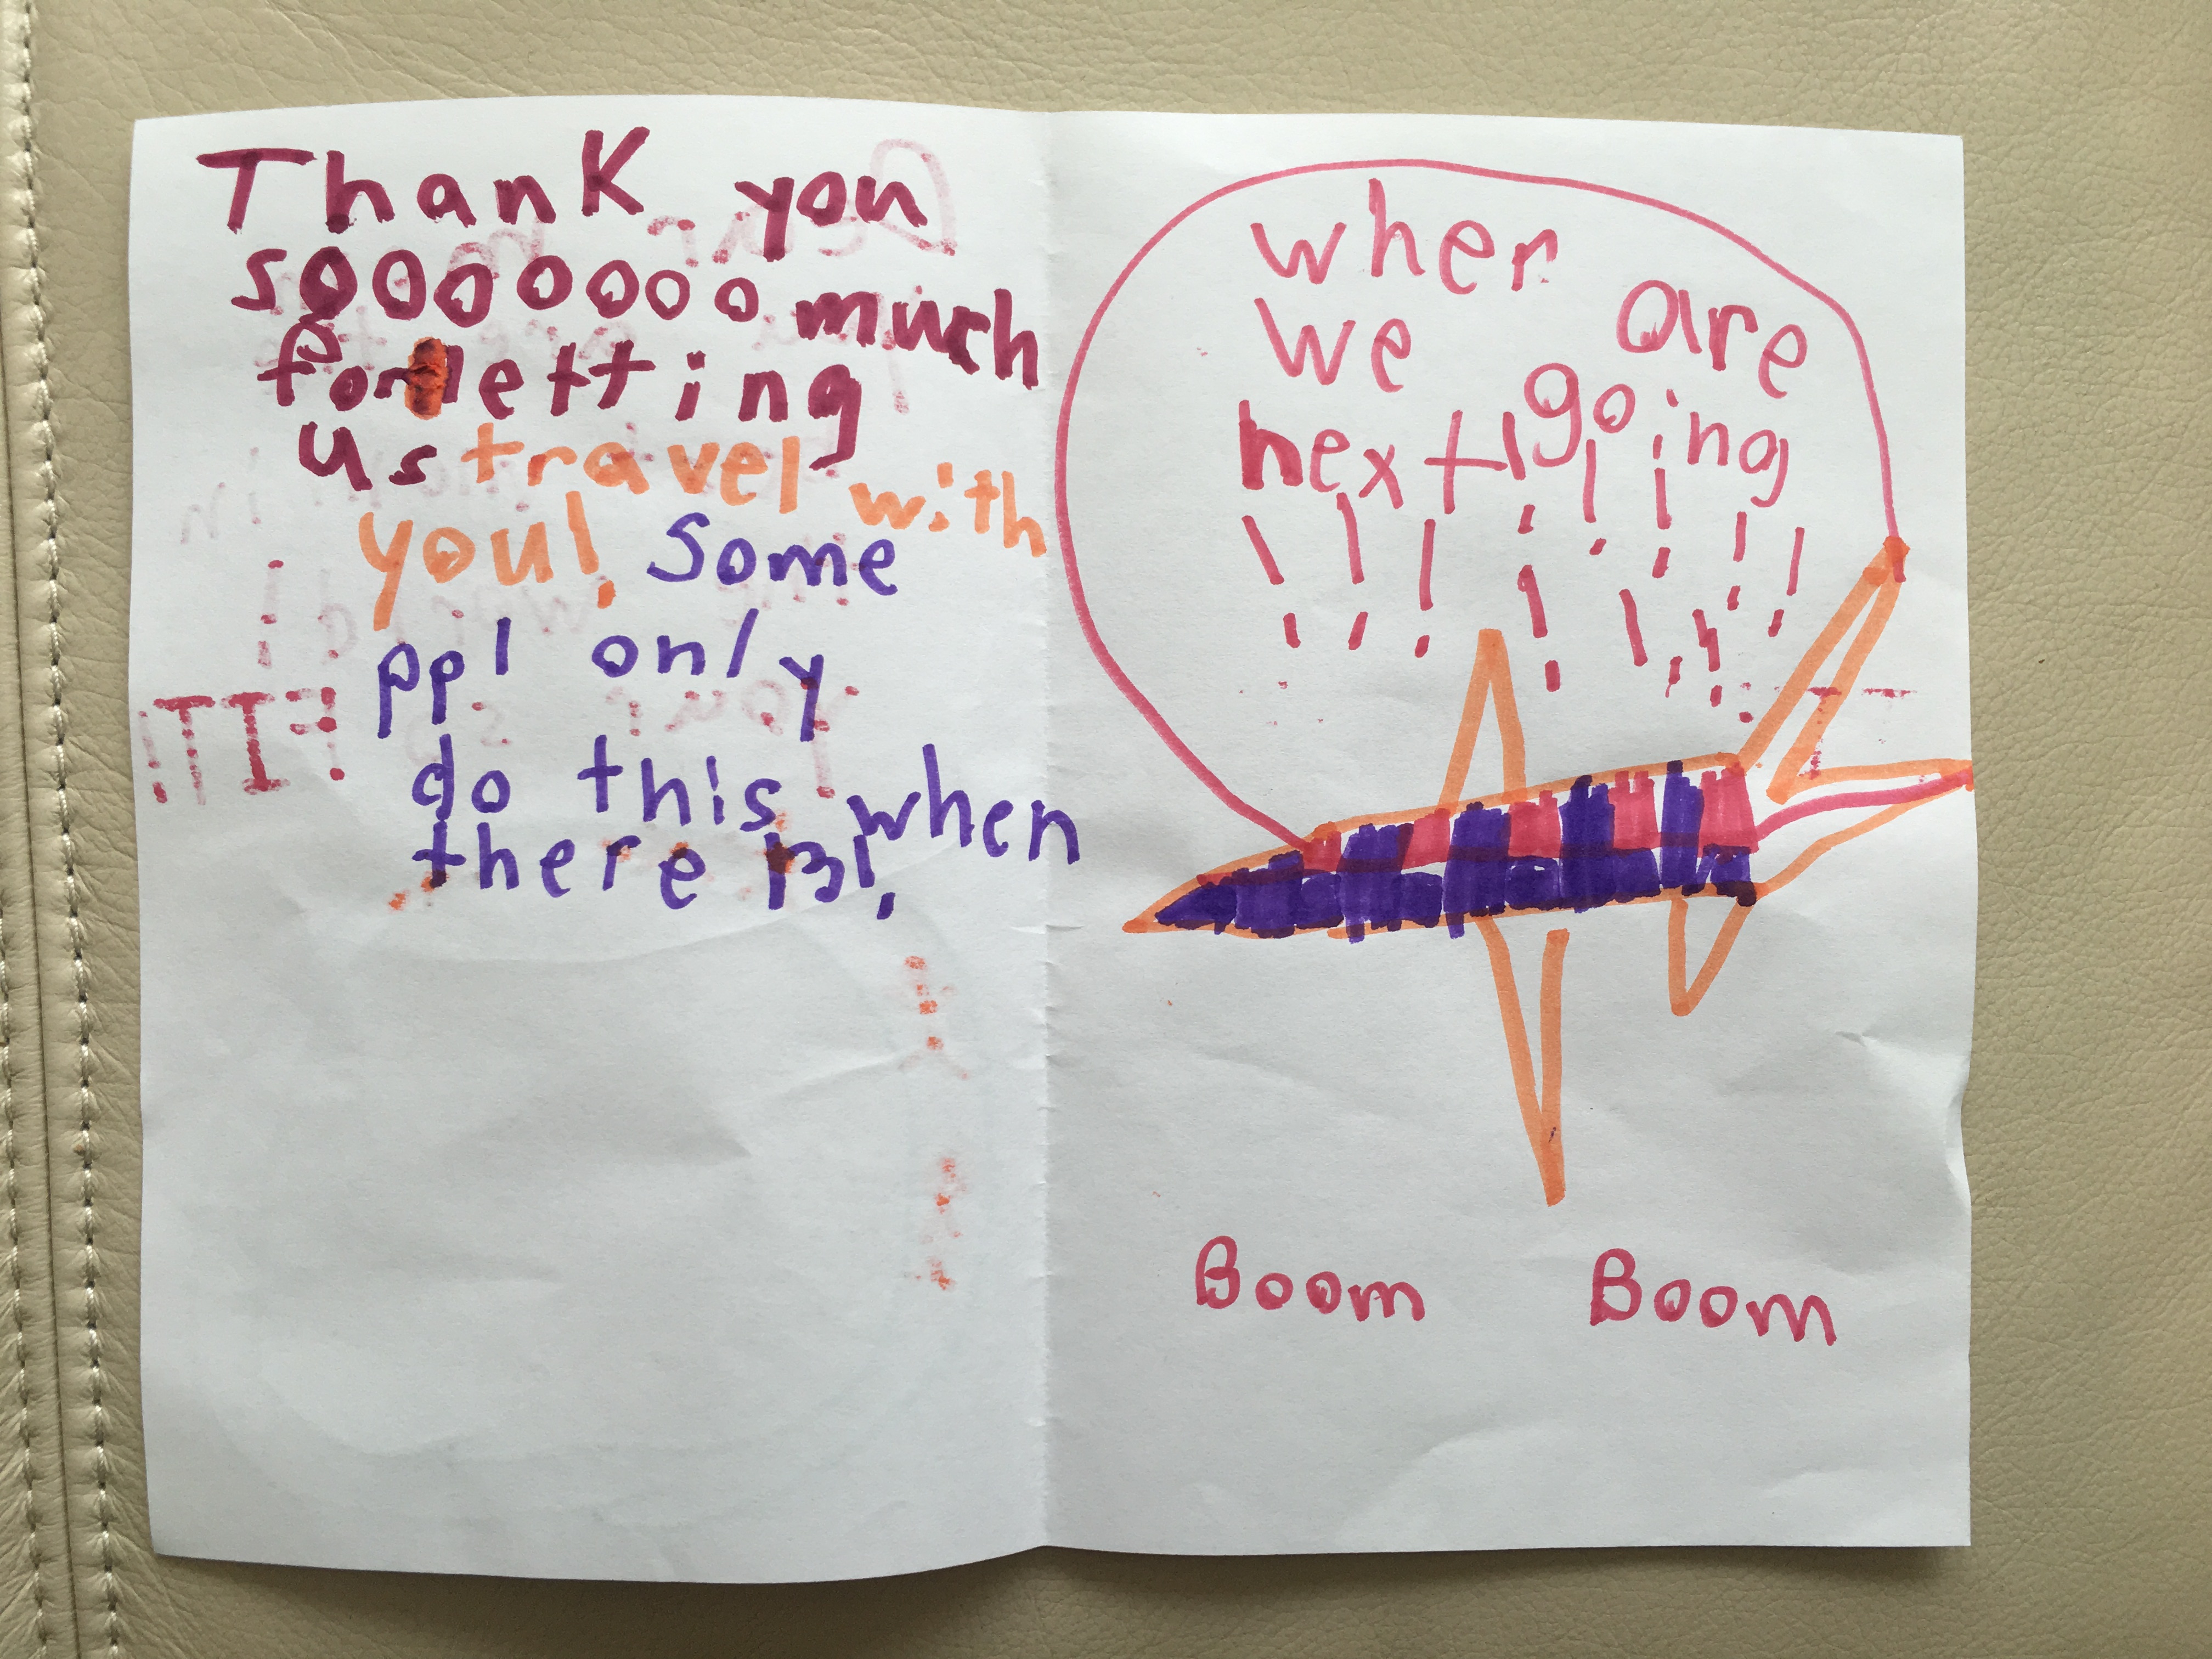 Thank you
sooooooo much
for letting
us travel with
you! Some
ppl only
do this when
there 13!,
wher are
we going
next!
Boom Boom